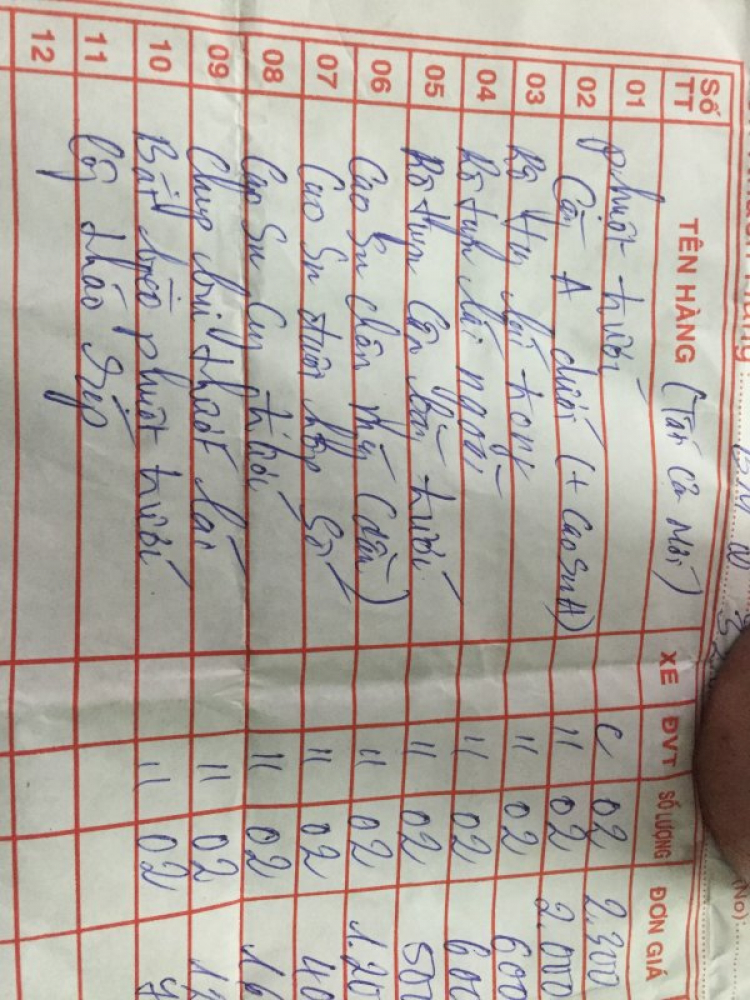 Số TT TÊN HÀNG (Tất cả Mới) XE ĐVT SỐ LƯỢNG ĐƠN GIÁ
01 Phuột trước C 02 2.300
02 Càng A dưới (+ Cao Su A) 11 02 2.000
03 Rô tuyn lái trong 11 02 600
04 Rô tuyn lái ngoài 11 02 600
05 Rô tuyn cân bằng trước 11 02 500
06 Cao Su chân máy (dầu) 11 02 1.20
07 Cao Su đuôi hộp Số 11 02 40
08 Cao Su trước 11 02 16
09 Chụp bụi thước lái 11 02 12
10 Bát bèo phuột trước 11 02
11 Công tháo ráp
12
(No)